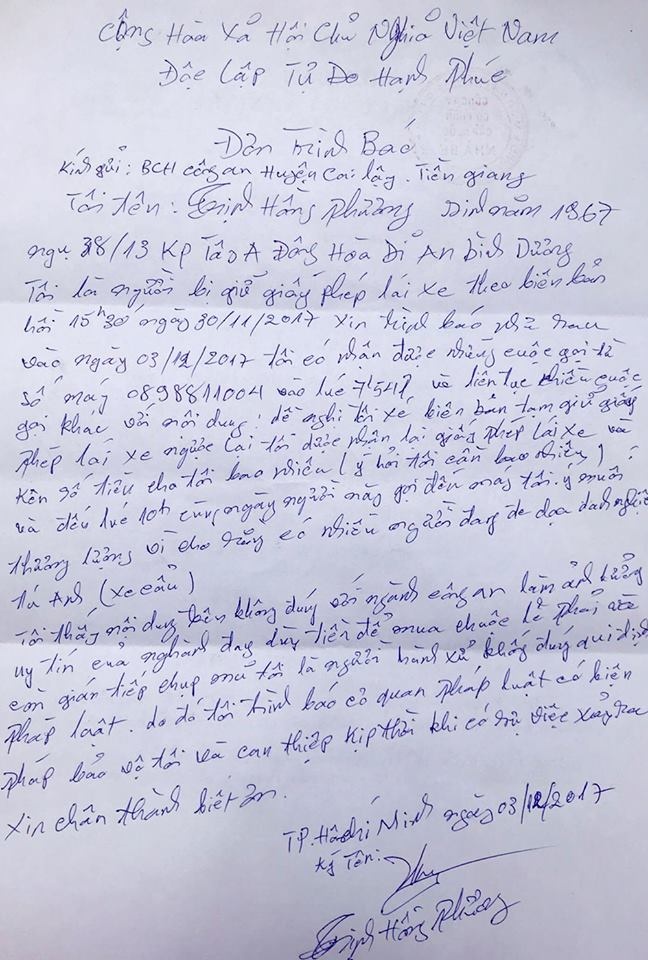 Cộng Hòa Xả Hội Chủ Nghỉa Việt Nam
Độc Lập Tự Do Hạnh Phúc
Đơn Trình Báo
Kính gửi : BCH công an Huyện Cai Lậy. Tiền giang
Tôi tên : Trịnh Hồng Phương Sinh năm 1967
ngụ 38/13 KP Tân A Đông Hòa Dỉ An Bình Dương
Tôi là người bị giữ giấy phép lái xe theo biên bản
hồi 15h30 ngày 30/11/2017 xin trình báo như sau
vào ngày 03/12/2017 tôi có nhận được những cuộc gọi từ
số máy 0898811004 vào lúc 7h54 và liên tục nhiều cuộc
gọi khác với nôi dung: đề nghị tôi xé biên bản tạm giử giấy
phép lái xe ngược lại tôi được nhận lại giấy phép lái xe và
kèn số tiền cho tôi bao nhiêu (ý hỏi tôi cần bao nhiêu)
và đến lúc 10h cùng ngày người này gọi đến máy tôi. ý muốn
thương lượng vì cho rằng có nhiều người đang đe dọa danh nghiệp
tá Anh (xe cẩu)
Tôi thấy nôi dung bên không đúng với ngành công an làm ảnh hưởng
uy tín của nghành đay dùng tiền để mua chuộc lẽ phải và
còn gián tiếp chụp mủ tôi là người hành xử không đúng qui định
pháp luật. do đó tôi trình báo cơ quan pháp luật có biên
pháp bảo vệ tôi và can thiệp kịp thời khi có sự việc xảy ra
xin chân thành biết ơn.
TP. Hồ chí Minh ngày 03/12/2017
Ký Tên:
Trịnh Hồng Phương